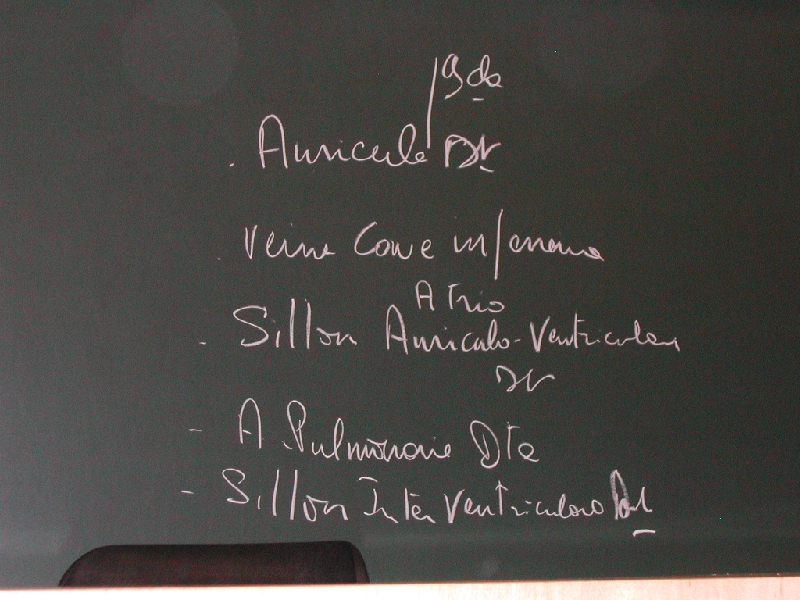 . Auricule / Gche
Dr
. Veine Cave inférieure
Atrio
. Sillon Auriculo-Ventriculaire
Dr
- A Pulmonaire Dte
- Sillon Inter Ventriculaire